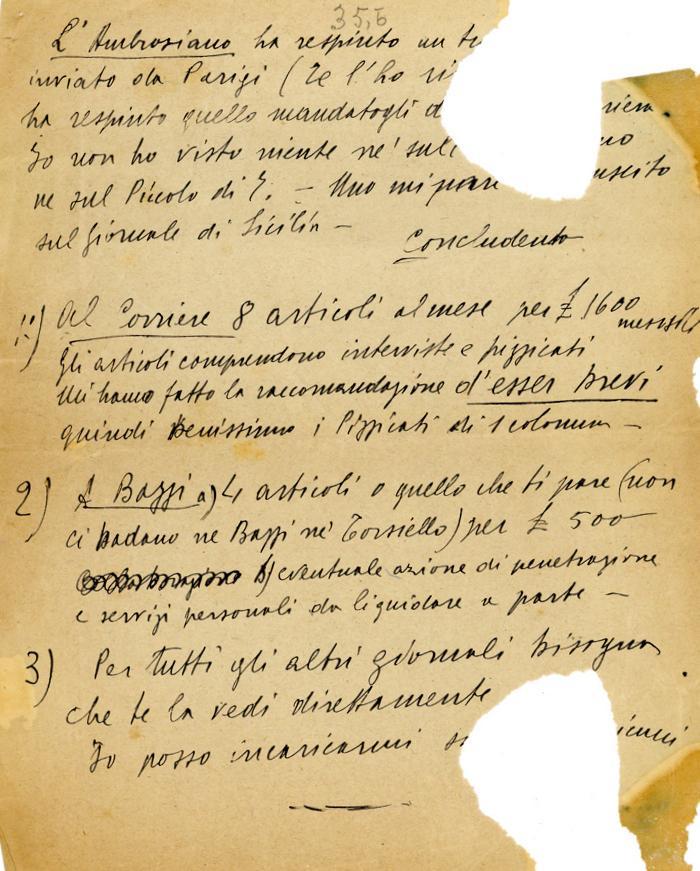 35,6
L'Ambrosiano ha respinto un
inviato da Parigi (Te l'ho
ha respinto quello mandatogli
Io non ho visto niente nè
ne sul Piccolo di T. — Uno mi pare
sul Giornale di Sicilia —
Concludendo
1) Al Corriere 8 articoli al mese per £ 1600 mensili
Gli articoli comprendono interviste e pizzicati
Mi hanno fatto la raccomandazione d'esser brevi
quindi benissimo i Pizzicati di 1 colonna —
2) A Bazzi a) 4 articoli o quello che ti pare (non
ci badano ne Bazzi nè Torsiello) per £ 500
b) eventuale azione di penetrazione
e servizi personali da liquidare a parte —
3) Per tutti gli altri giornali bisogna
che te la vedi direttamente
Io posso incaricarmi